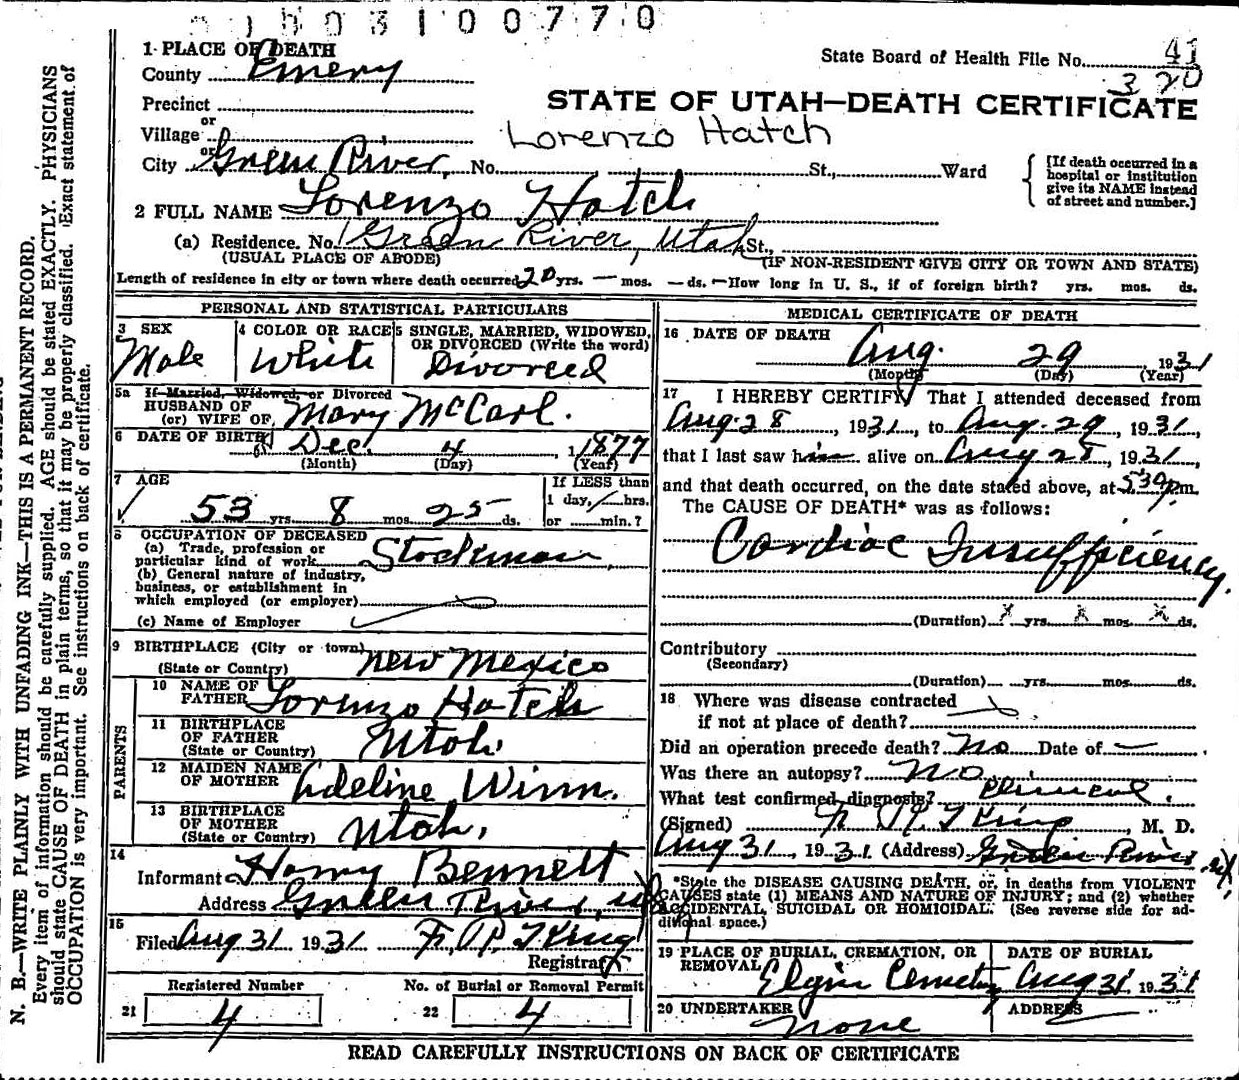 003100770
1 PLACE OF DEATH
County Emery
State Board of Health File No. 41
320
Precinct
or
Village
or
City Green River, No. St., Ward
STATE OF UTAH—DEATH CERTIFICATE
Lorenzo Hatch
[If death occurred in a
hospital or institution
give its NAME instead
of street and number.]
2 FULL NAME Lorenzo Hatch
(a) Residence. No. Green River, Utah St.,
(USUAL PLACE OF ABODE) (IF NON-RESIDENT GIVE CITY OR TOWN AND STATE)
Length of residence in city or town where death occurred 20 yrs. — mos. — ds. — How long in U. S., if of foreign birth? yrs. mos. ds.
PERSONAL AND STATISTICAL PARTICULARS
3 SEX
Male
4 COLOR OR RACE
White
5 SINGLE, MARRIED, WIDOWED,
OR DIVORCED (Write the word)
Divorced
5a If Married, Widowed, or Divorced
HUSBAND OF
(or) WIFE OF Mary McCarl.
6 DATE OF BIRTH Dec. 4, 1877
(Month) (Day) (Year)
7 AGE
53 yrs. 8 mos. 25 ds.
If LESS than
1 day, hrs.
or min.?
8 OCCUPATION OF DECEASED
(a) Trade, profession or
particular kind of work Stockman
(b) General nature of industry,
business, or establishment in
which employed (or employer)
(c) Name of Employer
9 BIRTHPLACE (City or town)
(State or Country) New Mexico
PARENTS
10 NAME OF
FATHER Lorenzo Hatch
11 BIRTHPLACE
OF FATHER
(State or Country) Utah
12 MAIDEN NAME
OF MOTHER Adeline Winn.
13 BIRTHPLACE
OF MOTHER
(State or Country) Utah.
14
Informant Harry Bennett
Address Green River, Ut
15
Filed Aug 31 1931 King
Registrar
Registered Number
21 4
No. of Burial or Removal Permit
22 4
MEDICAL CERTIFICATE OF DEATH
16 DATE OF DEATH
Aug. 29 1931
(Month) (Day) (Year)
17 I HEREBY CERTIFY That I attended deceased from
Aug. 28, 1931, to Aug. 29, 1931,
that I last saw him alive on Aug 28, 1931,
and that death occurred, on the date stated above, at 530 p.m.
The CAUSE OF DEATH* was as follows:
Cardiac Insufficiency.
(Duration) x yrs. x mos. x ds.
Contributory
(Secondary)
(Duration) yrs. mos. ds.
18 Where was disease contracted
if not at place of death?
Did an operation precede death? No Date of —
Was there an autopsy? No
What test confirmed diagnosis? Clinical.
(Signed) King, M. D.
Aug 31, 1931. (Address) Green River, Ut
*State the DISEASE CAUSING DEATH, or, in deaths from VIOLENT
CAUSES state (1) MEANS AND NATURE OF INJURY; and (2) whether
ACCIDENTAL, SUICIDAL OR HOMICIDAL. (See reverse side for ad-
ditional space.)
19 PLACE OF BURIAL, CREMATION, OR
REMOVAL Elgin Cemetery
DATE OF BURIAL
Aug 31 1931
20 UNDERTAKER
None
ADDRESS
READ CAREFULLY INSTRUCTIONS ON BACK OF CERTIFICATE
N. B.—WRITE PLAINLY WITH UNFADING INK—THIS IS A PERMANENT RECORD.
Every item of information should be carefully supplied. AGE should be stated EXACTLY. PHYSICIANS
should state CAUSE OF DEATH in plain terms, so that it may be properly classified. Exact statement of
OCCUPATION is very important. See instructions on back of certificate.